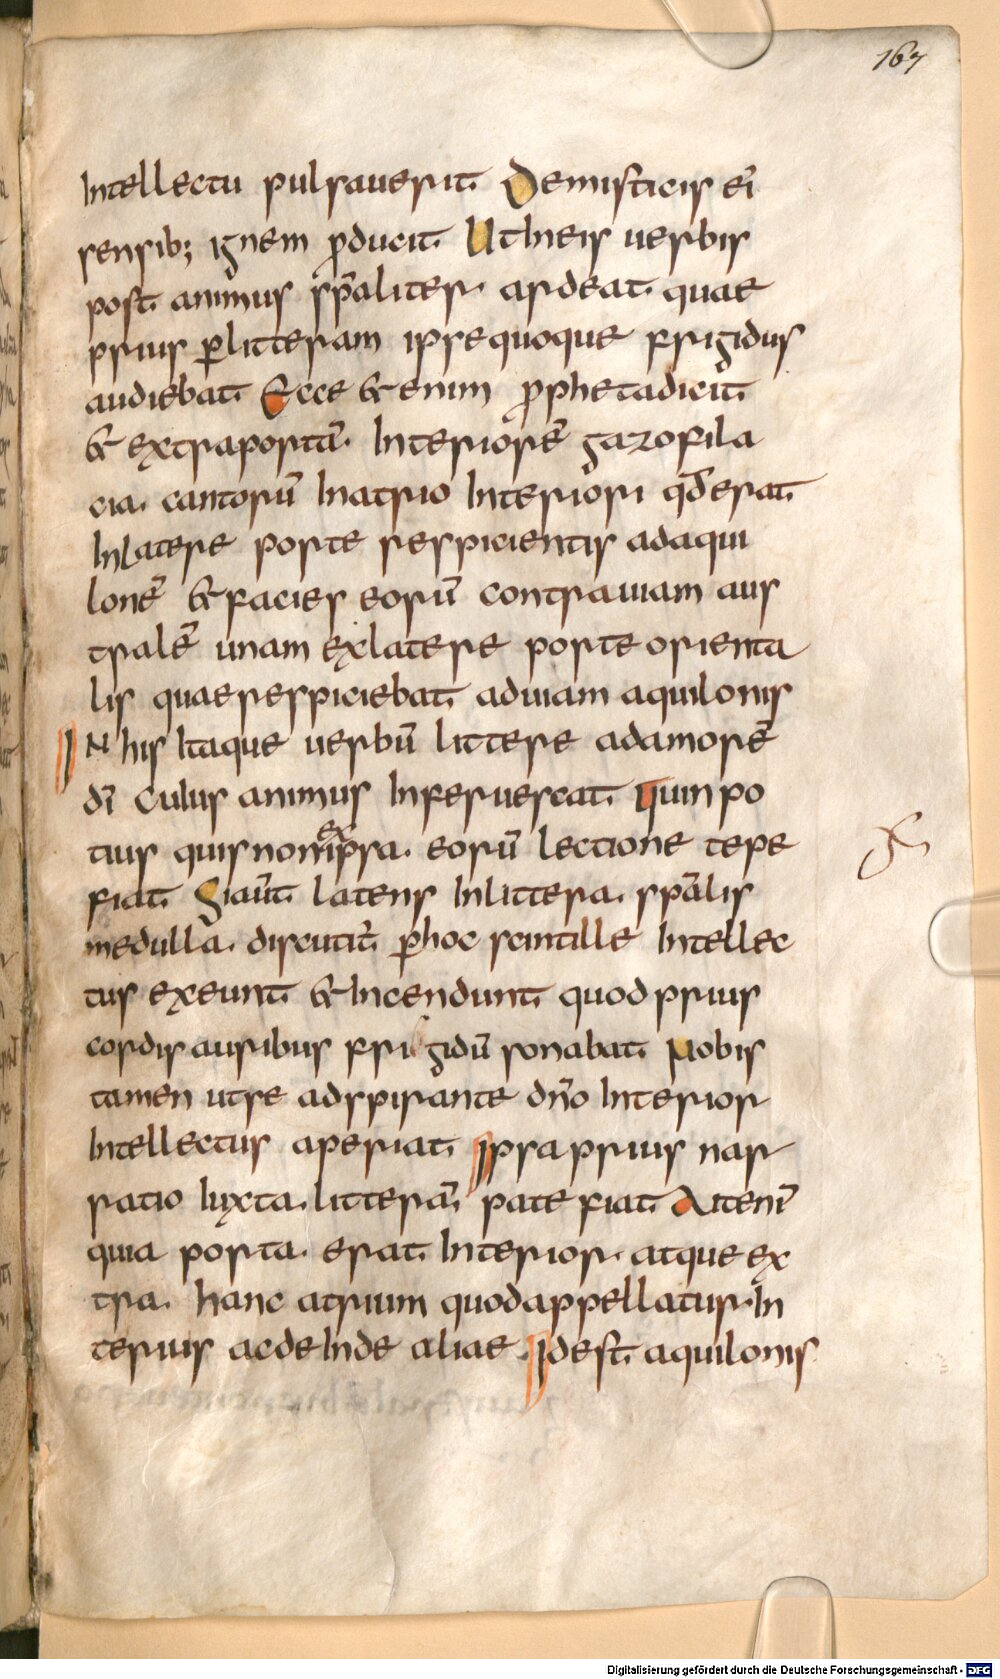 167
Intellectu pulsaverit Demisticis ei̅
sensib; ignem p̱ducit Ut Ineis verbis
post animus sp̅aliter ardeat quae
prius p̱litteram ipsequoque frigidus
audiebat Ecce & enim p̱phetadicit
& extraporta̅. Interiore̅ gazofila
cia. cantoru̅ Inatrio Interiori qd̅erat
Inlatere porte respicientis adaqui
lone̅ & facies eoru̅ contraviam aus
trale̅ unam exlatere porte orienta
lis quaerespiciebat adviam aquilonis
IN his Itaque verbu̅ littere adamore̅
di̅ Cuius animus Infervescat Quinpo
tius quisnonexipsa. eoru̅ lectione tepe
fiat Siau̅t latens Inlittera. sp̅alis
medulla. discutit̅ p̱hoc scintille Intellec
tus exeunt & Incendunt quod prius
cordis auribus frigidu̅ sonabat Nobis
tamen utse adspirante dn̅o Interior
Intellectus aperiat Ipsa prius nar
ratio Iuxta. littera̅ pate fiat Aiteni̅
quia porta. erat Interior. atque ex
tra. hanc atrium quodappellatur. In
terius ac deInde aliae Idest aquilonis
Digitalisierung gefördert durch die Deutsche Forschungsgemeinschaft - DFG